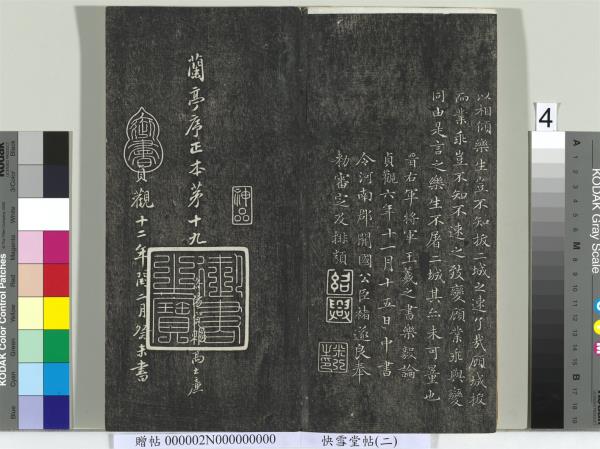 以相傾樂生豈不知拔二城之速了哉顧城拔
而業乖豈不知不速之致變顧業乖與變
同由是言之樂生不屠二城其亦未可量也
晉右軍將軍王羲之書樂毅論
貞觀六年十一月十五日中書
令河南郡開國公臣褚遂良奉
勅審定及排類
紹興
神品
蘭亭序正本第十九
御書
貞觀十二年閏二月癸未書
御書
之寶
4
KODAK Gray Scale
A 1 2 3 4 5 6 M 8 9 10 11 12 13 14 15 B 17 18 19
KODAK Color Control Patches
Blue
Cyan
Green
Yellow
Red
Magenta
White
3/Color
Black
贈帖 000002N000000000
快雪堂帖(二)